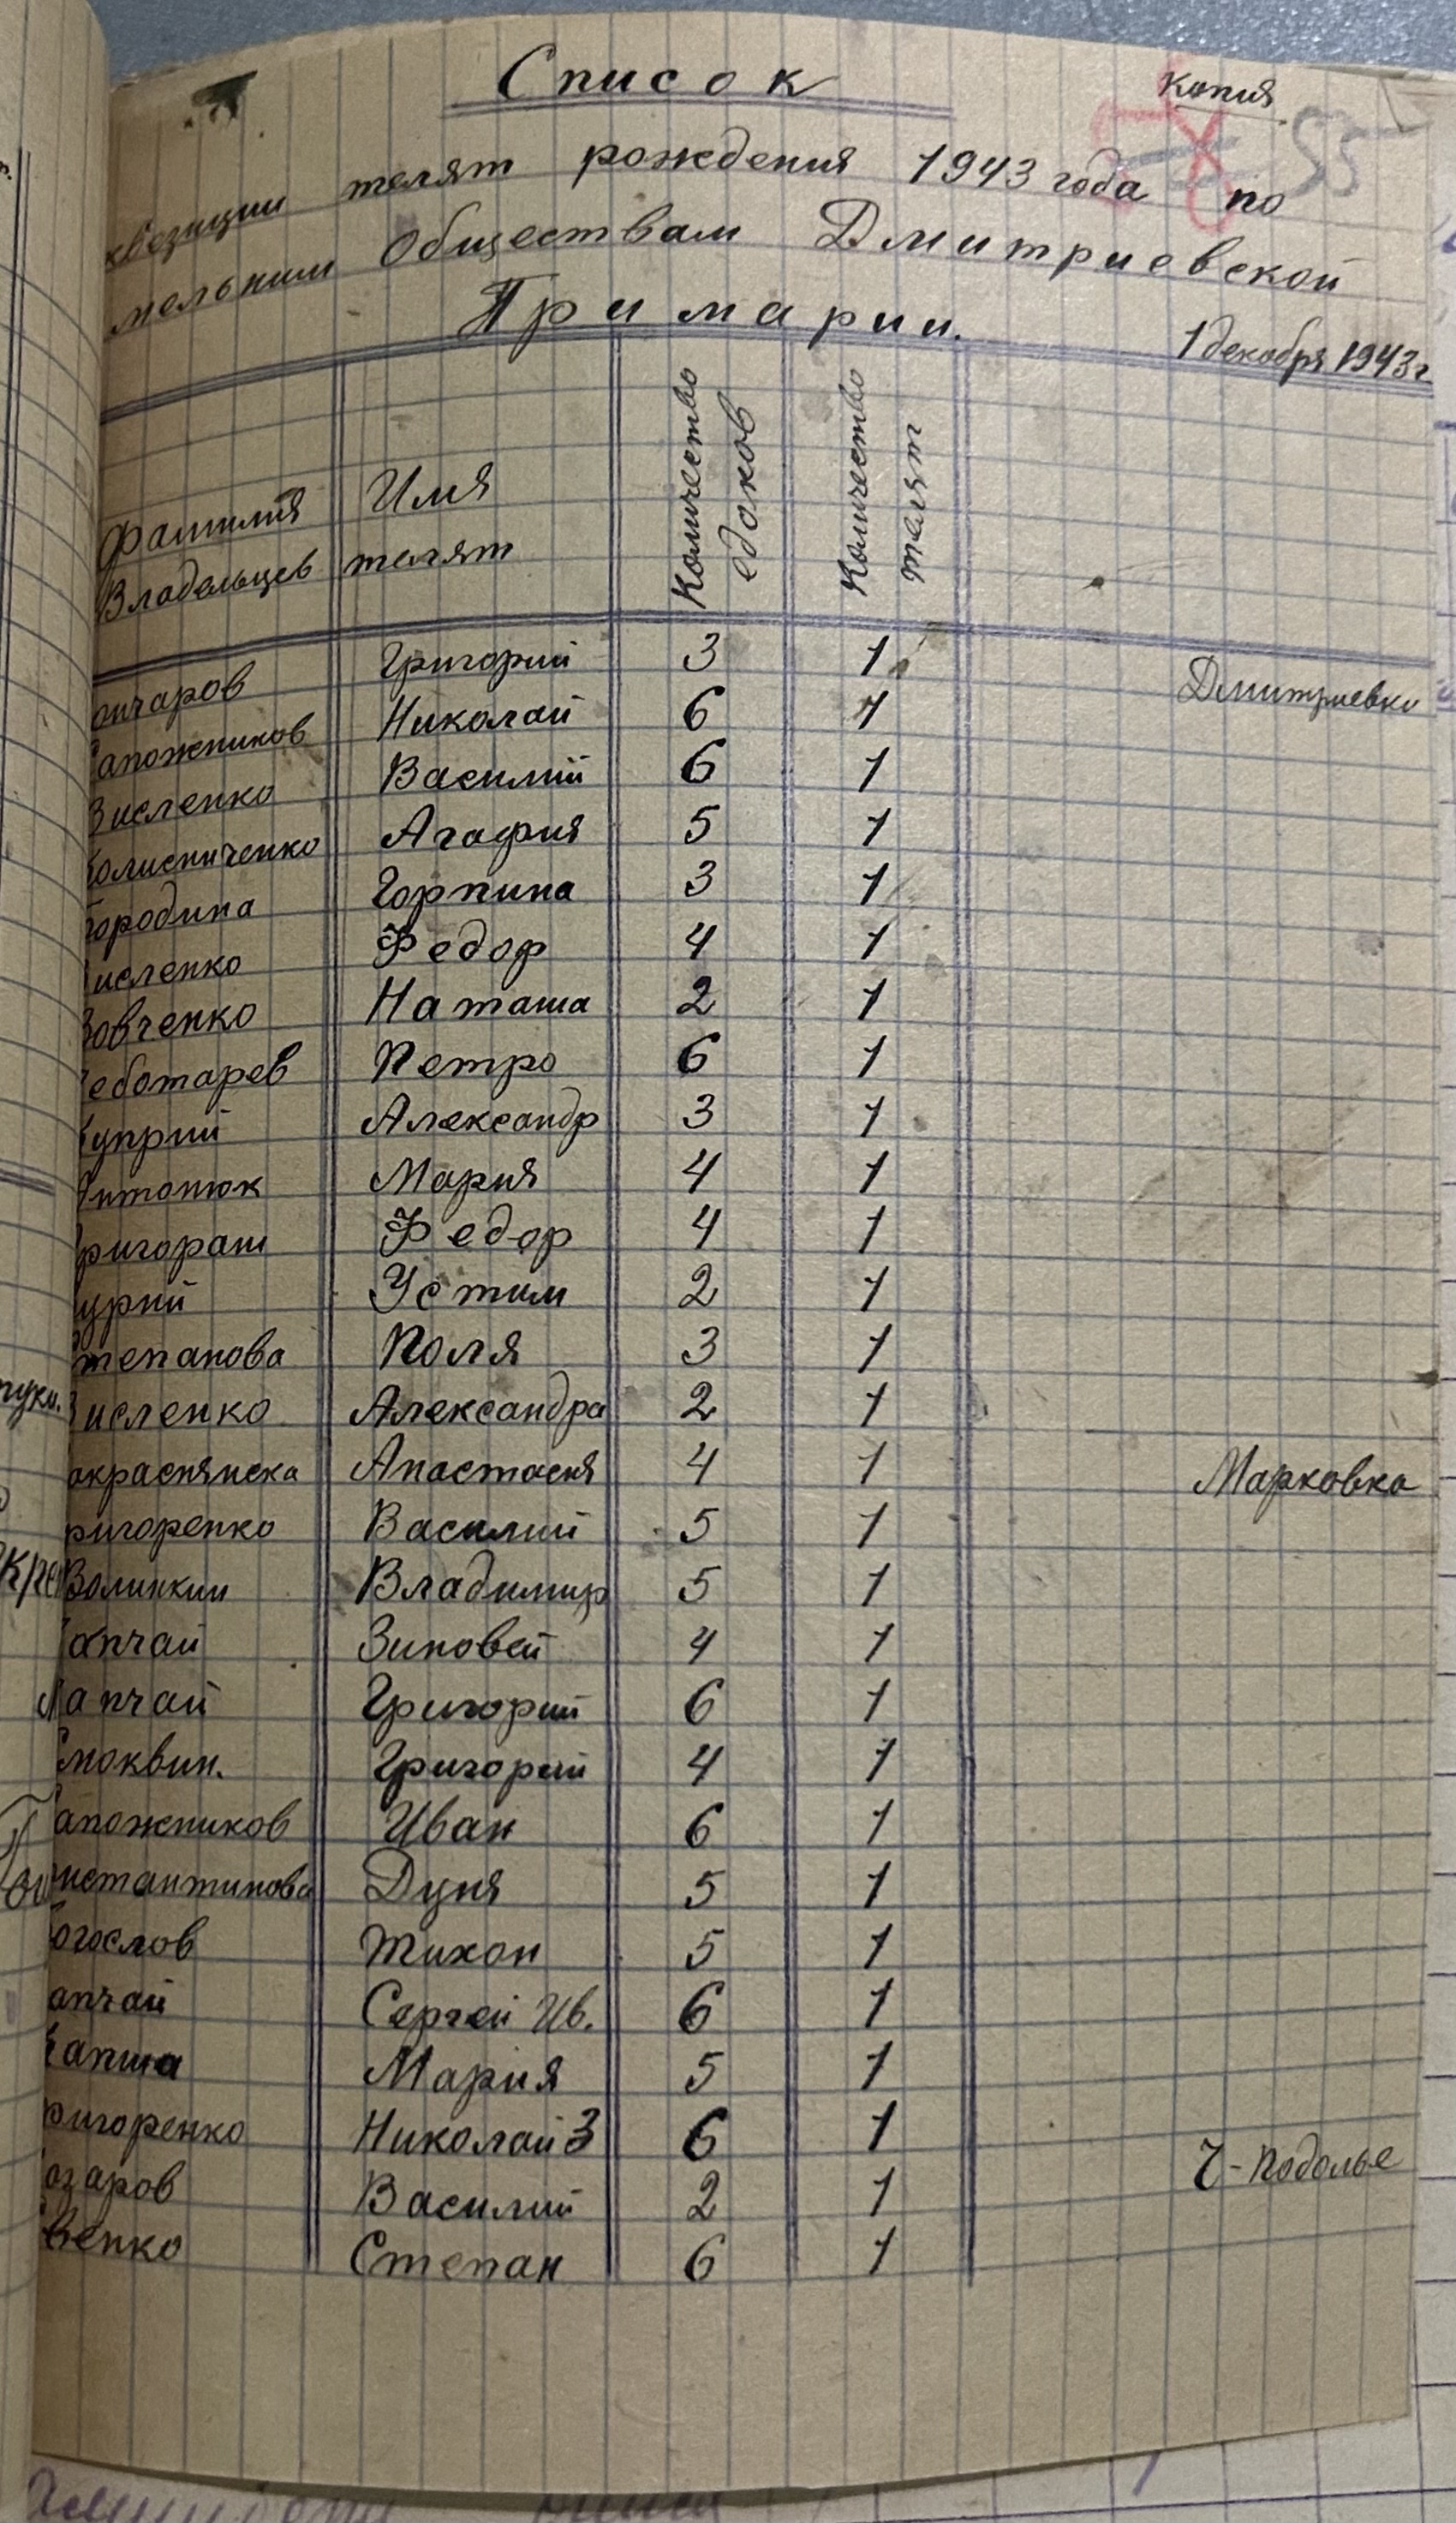 Список
Копия
55
квезиции телят рождения 1943 года по
мельним Обществам Дмитриевской
Примарии.
1 декабря 1943 г
Фамилия Владельцев Имя телят Количество едоков Количество телят
ончаров Григорий 3 1 Дмитриевка
апожников Николай 6 1
Зисленко Василий 6 1
Колисниченко Агафия 5 1
Городина Горпина 3 1
исленко Федор 4 1
Вовченко Наташа 2 1
еботарев Петро 6 1
Куприй Александр 3 1
Антонюк Мария 4 1
ригораш Федор 4 1
урий Устим 2 1
тепанова Поля 3 1
Зисленко Александра 2 1
окраснянска Анастасия 4 1 Марковка
ригоренко Василий 5 1
Волинкин Владимир 5 1
апчай Зиновей 4 1
Лапчай Григорий 6 1
Смоквин. Григорий 4 1
апожников Иван 6 1
нстантинова Дуня 5 1
огослов Тихон 5 1
апчай Сергей Ив. 6 1
Капша Мария 5 1
ригоренко Николай З 6 1
озаров Василий 2 1 Ч-Подолье
венко Степан 6 1